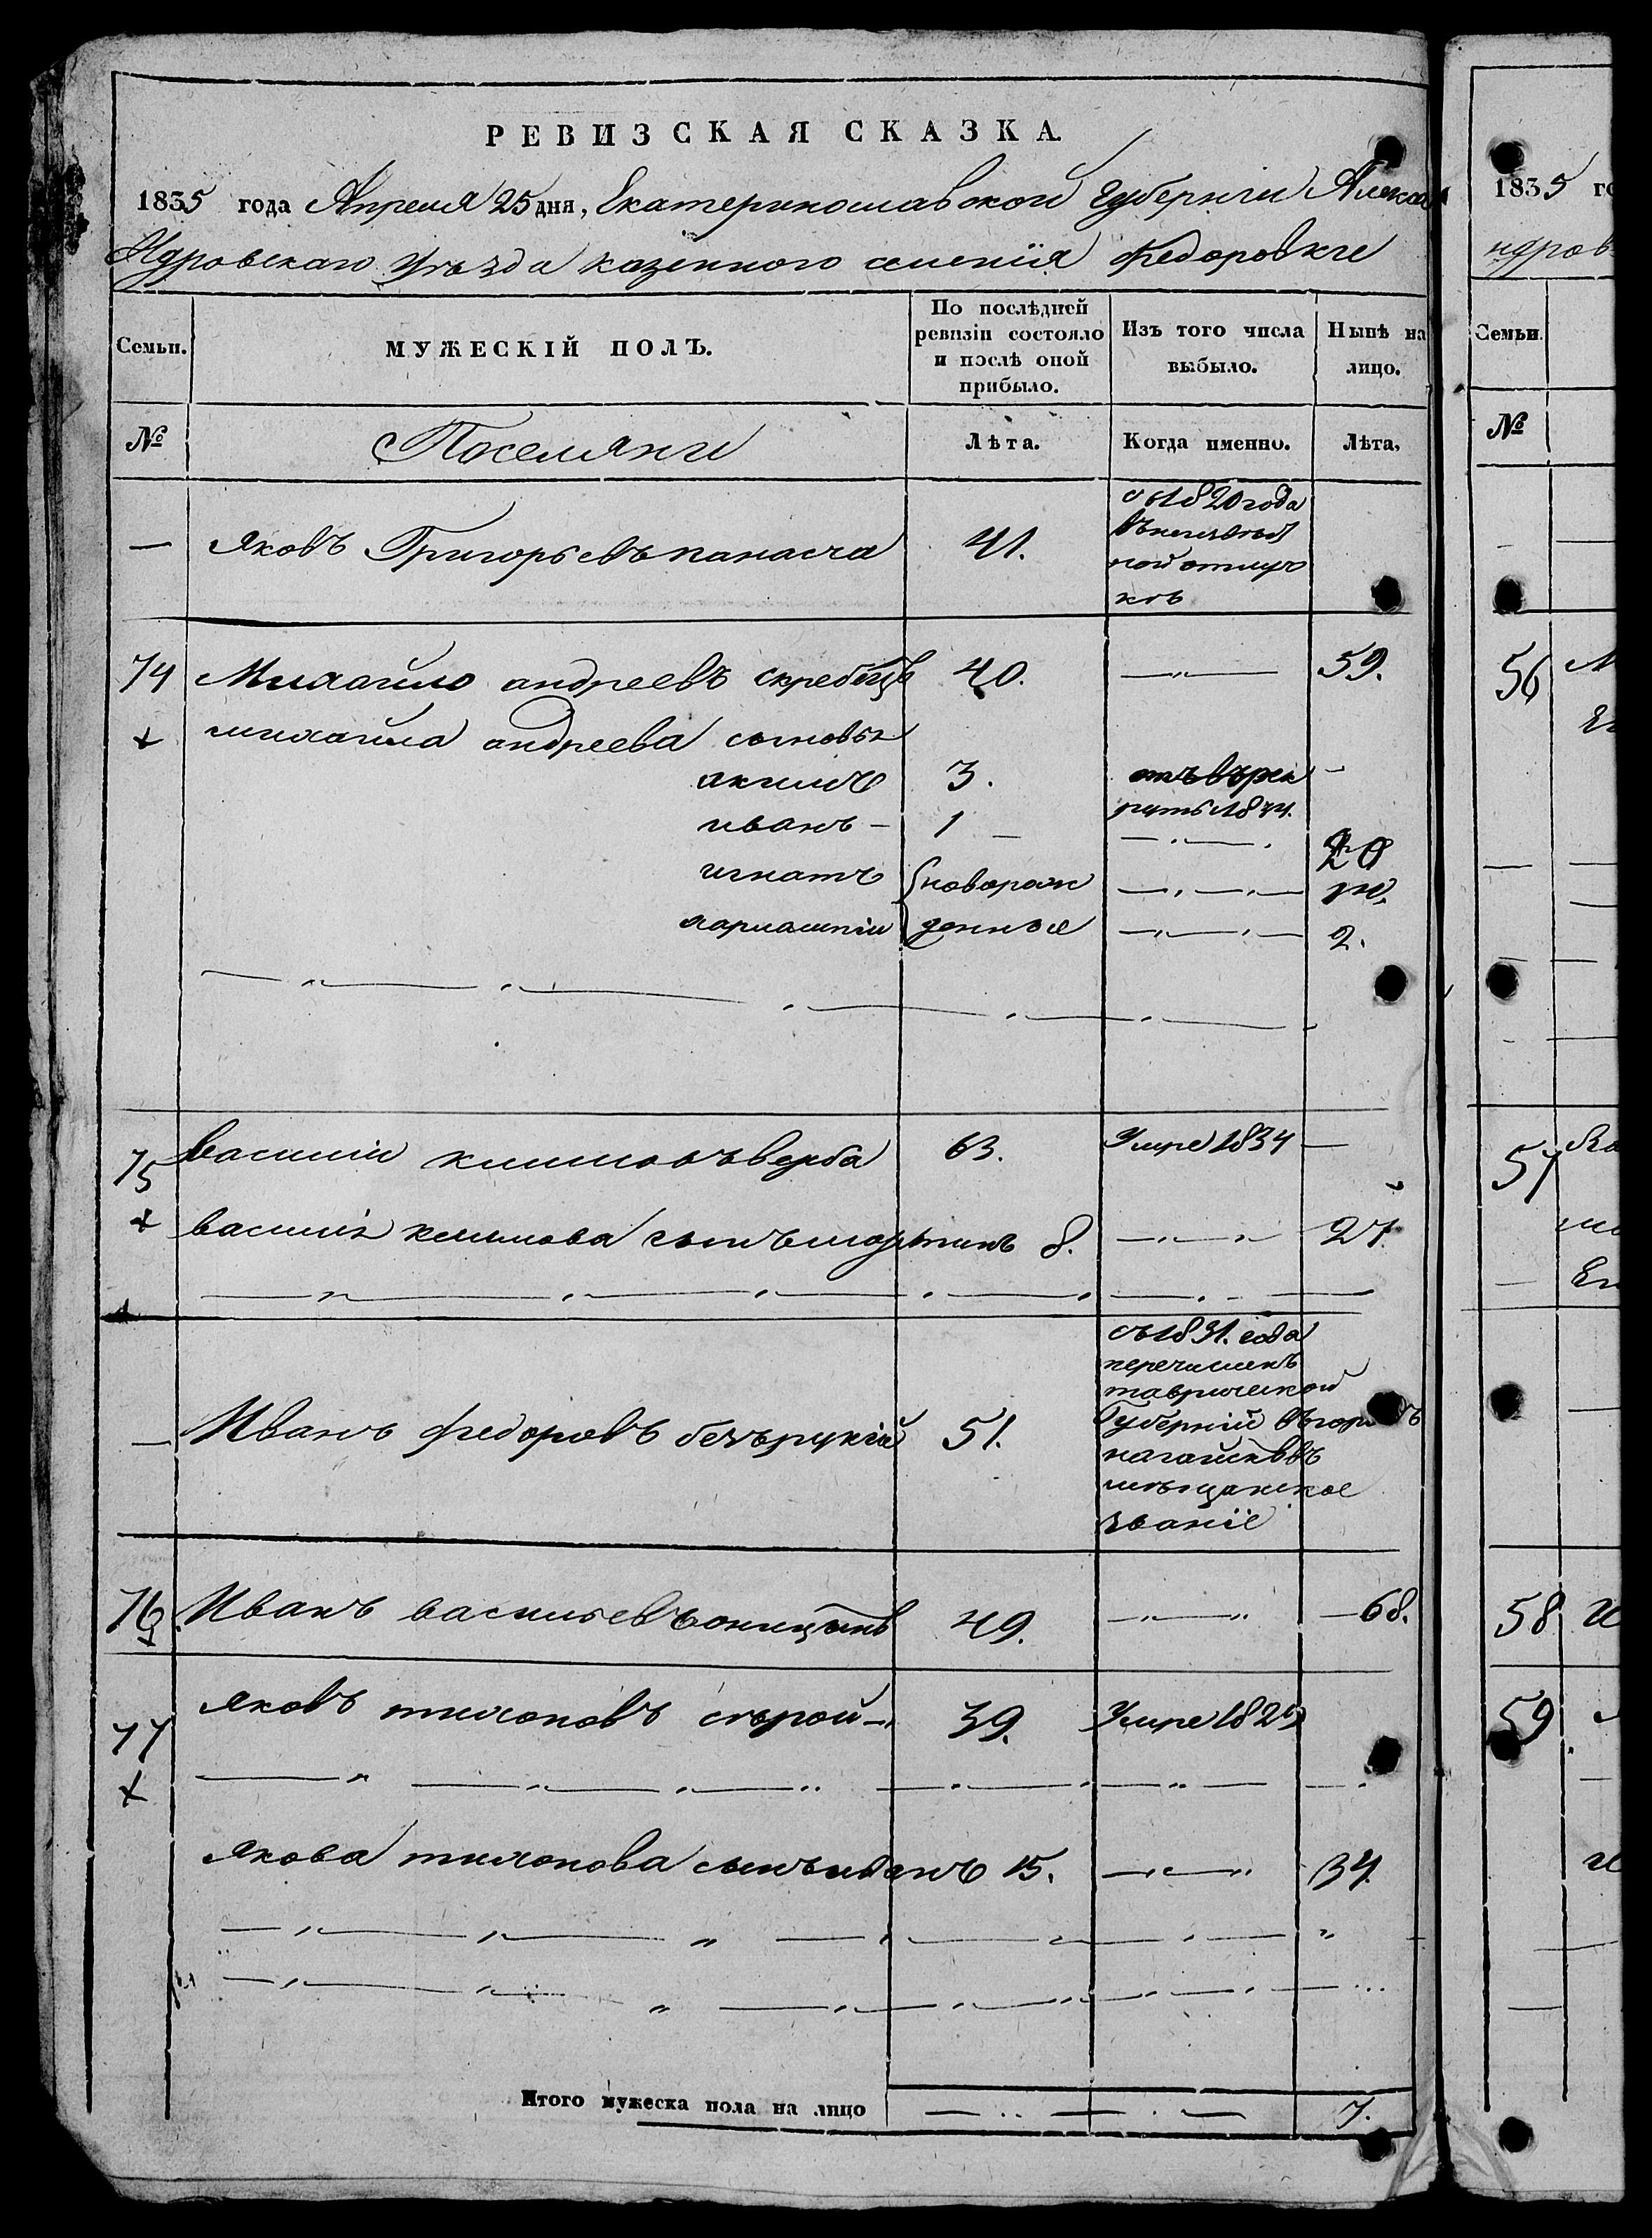 РЕВИЗСКАЯ СКАЗКА
1835 года Апреля 25 дня, Екатеринославской Губерніи Алекса
ндровскаго Уѣзда казенного селенія Федоровки
Семьи. МУЖЕСКІЙ ПОЛЪ. По послѣдней ревизіи состояло и послѣ оной прибыло. Изъ того числа выбыло. Нынѣ на лицо.
№ Поселяни Лѣта. Когда именно. Лѣта,
— Яковъ Григорьевъ панасча 41. съ 1820 года
въ неизвѣст
ной отлуч
кѣ
74 Михайло андреевъ скребецъ 40. —„— 59.
михайла андреева сыновья
якимъ 3. отъ въ рек
руты 1834.
иванъ — 1 — —.—. 20
игнатъ новорож —„—„—
харлампій денные —„—„— 2.
75 василій климовъ верба 63. Умре 1834 —
василія климова сынъ мартинъ 8. —„—„ 27.
— Иванъ федоровъ безърукій 51. съ 1831. года
перечисленъ
таврической
Губерній въ горо
нагайскъ въ
мѣщанское
званіе
76 Иванъ васильевъ 49. —„—„ —68.
77 яковъ тихоновъ сѣрой — 39. Умре 182
якова тихонова сынъ иванъ 15. —„—„ 34.
Итого мужеска пола на лицо 7.
1835 го
ндров
Семьи.
№
56
57
58
59